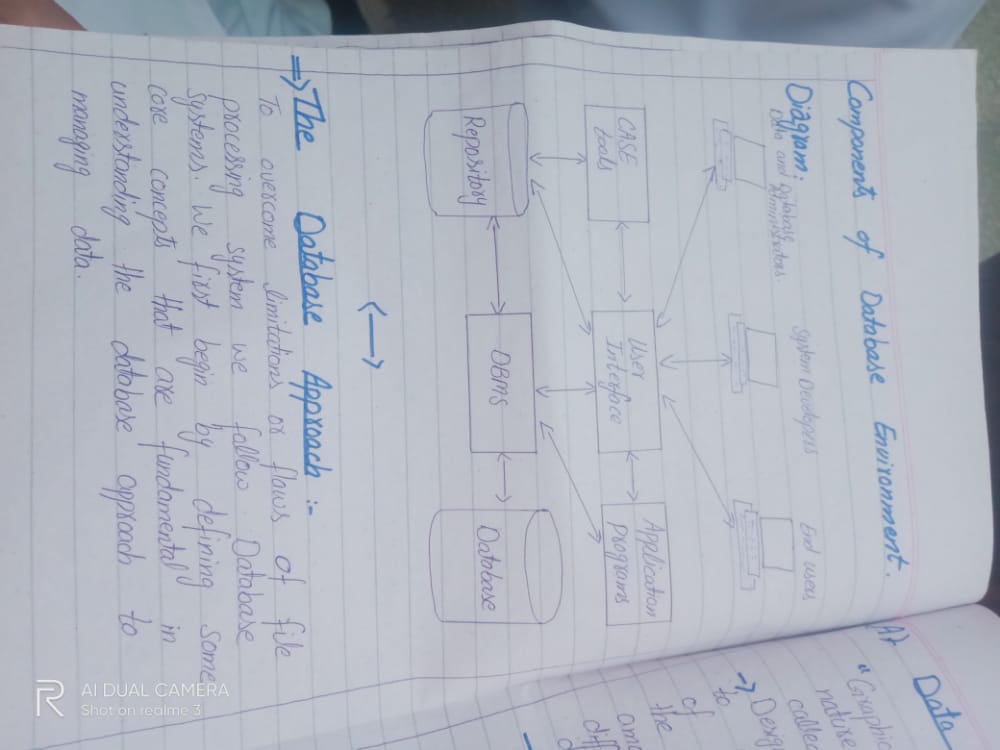 Components of Database Environment.
Diagram:
Data and database
administrators.
System Developers
End users
CASE
tools
User
Interface
Application
programs
Repository
DBMS
Database
⇒ The Database Approach :-
To overcome limitations or flaws of file
processing system we follow Database
systems. We first begin by defining some
core concepts that are fundamental in
understanding the database approach to
managing data.
Data
"Graphic
nature
called
→ Desig
to
of
the
amo
diff
R
AI DUAL CAMERA
Shot on realme 3